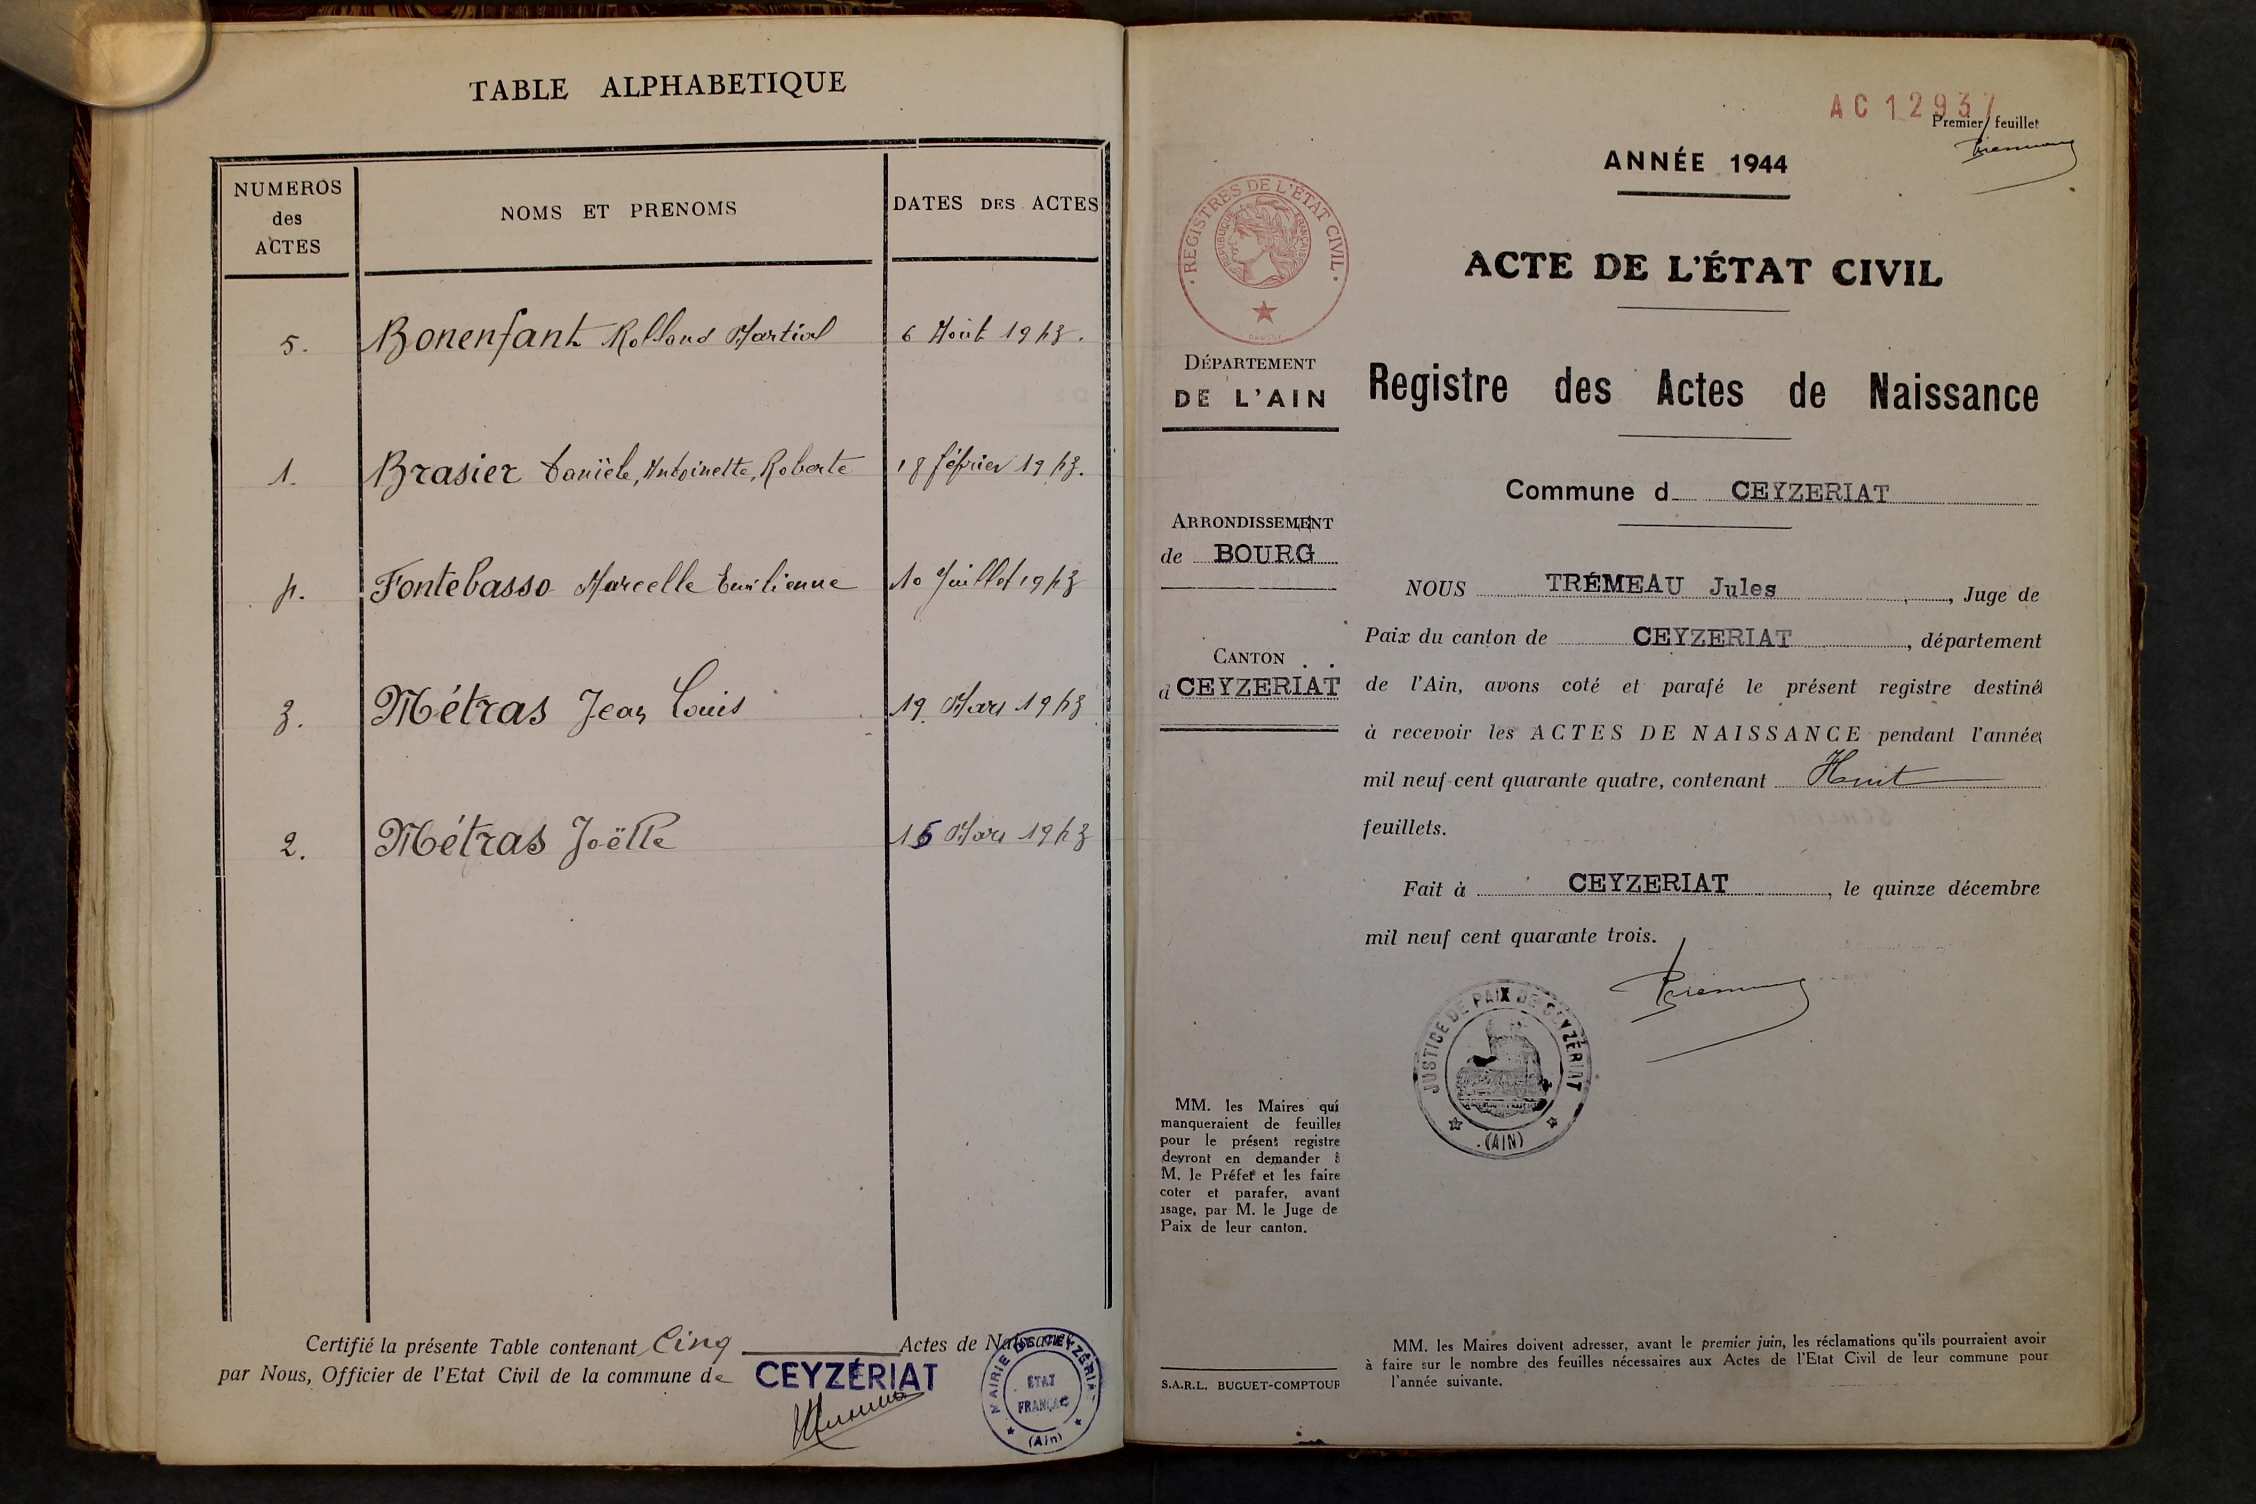 TABLE ALPHABETIQUE
NUMEROS
des
ACTES
NOMS ET PRENOMS
DATES DES ACTES
5. Bonenfant Rolland Martial 6 Août 1943.
1. Brasier Danièle, Antoinette, Roberte 18 février 1943.
4. Fontebasso Marcelle Emilienne 10 Juillet 1943
3. Métras Jean Louis 19 Mars 1943
2. Métras Joëlle 15 Mars 1943
Certifié la présente Table contenant Cinq Actes de Naissance
par Nous, Officier de l'Etat Civil de la commune de CEYZÉRIAT
MAIRIE DE CEYZÉRIAT
ETAT
FRANÇAIS
(Ain)
AC 12937
Premier feuillet
ANNÉE 1944
REGISTRES DE L'ÉTAT CIVIL
REPUBLIQUE FRANÇAISE
ACTE DE L'ÉTAT CIVIL
DÉPARTEMENT
DE L'AIN
Registre des Actes de Naissance
Commune d CEYZERIAT
ARRONDISSEMENT
de BOURG
CANTON
d CEYZERIAT
NOUS TRÉMEAU Jules, Juge de
Paix du canton de CEYZERIAT, département
de l'Ain, avons coté et parafé le présent registre destiné
à recevoir les ACTES DE NAISSANCE pendant l'année
mil neuf cent quarante quatre, contenant Huit
feuillets.
Fait à CEYZERIAT, le quinze décembre
mil neuf cent quarante trois.
JUSTICE DE PAIX DE CEYZÉRIAT
(AIN)
MM. les Maires qui
manqueraient de feuilles
pour le présent registre
devront en demander à
M. le Préfet et les faire
coter et parafer, avant
usage, par M. le Juge de
Paix de leur canton.
S.A.R.L. BUGUET-COMPTOUR
MM. les Maires doivent adresser, avant le premier juin, les réclamations qu'ils pourraient avoir
à faire sur le nombre des feuilles nécessaires aux Actes de l'Etat Civil de leur commune pour
l'année suivante.